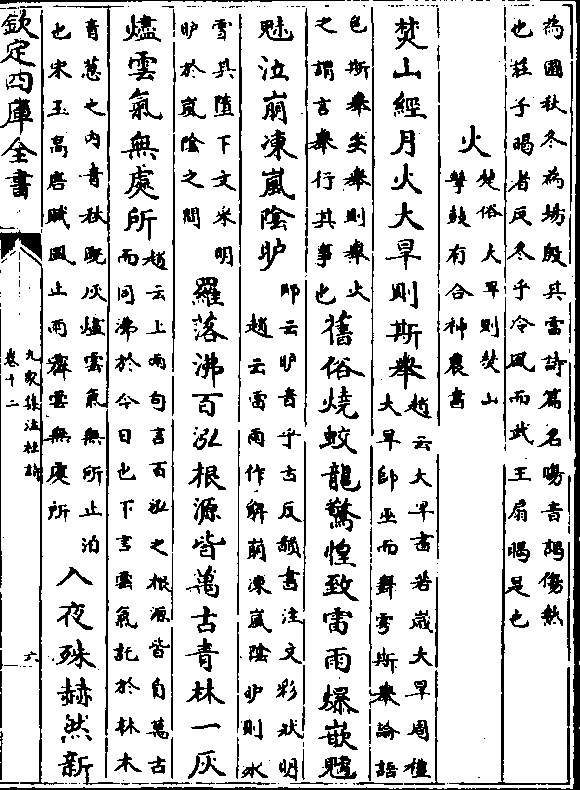 為圃秋冬為場殷其雷詩篇名暍音謁傷熱
也莊子暍者反冬乎冷風而武王扇暍是也
火
楚俗大旱則焚山
擊鼓有合神農書
焚山經月火大旱則斯舉
趙云大旱書若歲大旱周禮
大旱帥巫而舞雩斯舉論語
色斯舉矣舉則舉火
之謂言舉行其事也
舊俗燒蛟龍驚惶致雷雨爆嵌魑
魅泣崩凍嵐陰昈
師云昈音乎古反韻書注文彩狀明
趙云雷雨作解崩凍嵐陰昈則冰
雪具墮下文采明
昈於嵐陰之間
羅落沸百泓根源皆萬古青林一灰
燼雲氣無處所
趙云上兩句言百泓之根源皆自萬古
而同沸於今日也下言雲氣託於林木
青葱之内青林既灰燼雲氣無所止泊
也宋玉高唐賦風止雨霽雲無處所
入夜殊赫然新
欽定四庫全書
九家集注杜詩
卷十二
六